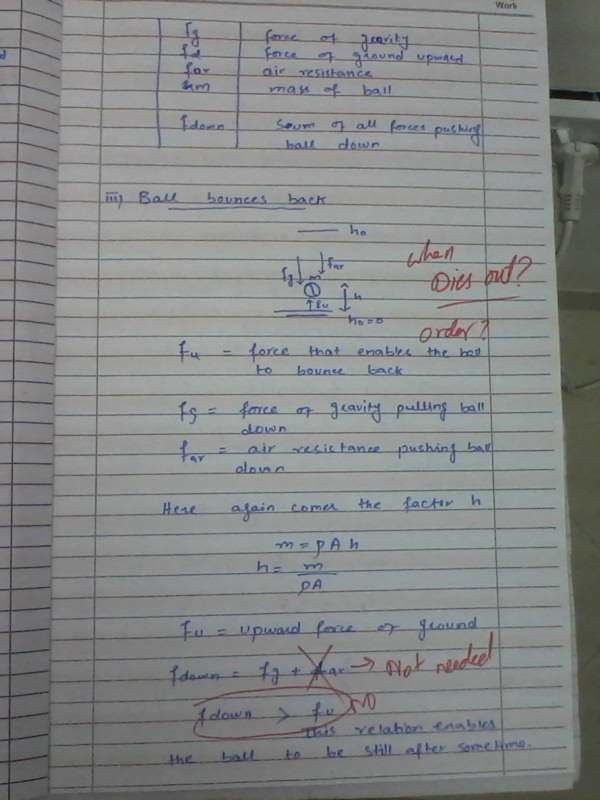 Work
Fg force of gravity
Fd force of ground upward
Far air resistance
m mass of ball
Fdown Soum of all forces pushing
ball down
iii) Ball bounces back
h0
Fg Far
m
Fu h
h0=0
when
Dies out?
order?
Fu = force that enables the ball
to bounce back
Fg = force of gravity pulling ball
down
Far = air resistance pushing ball
down
Here again comes the factor h
m = ρAh
h = m
ρA
Fu = upward force of ground
Fdown = Fg + Far → Not needed
Fdown > Fu
This relation enables
the ball to be still after sometime.